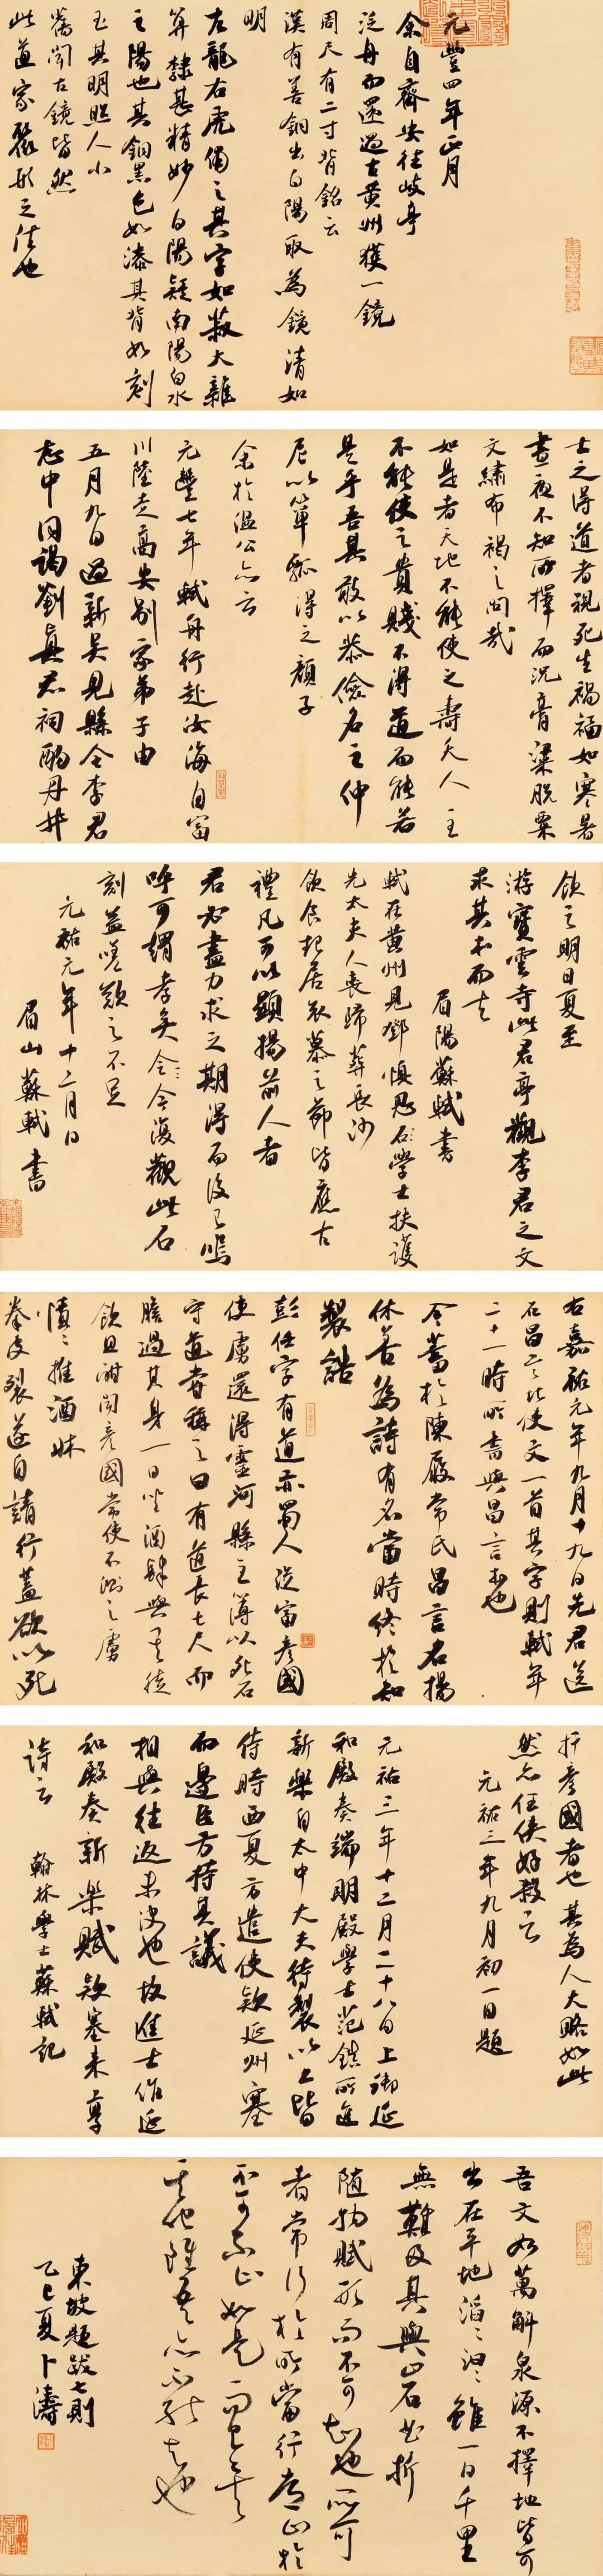 元豐四年正月
余自齊安往岐亭
泛舟而還過古黃州獲一鏡
周尺有二寸背銘云
漢有善銅出白陽取為鏡清如
明
左龍右虎俌之其字如菽大雜
篆隸甚精妙白陽疑南陽白水
之陽也其銅黑色如漆其背如刻
玉其明照人小
舊聞古鏡皆然
此道家聚形之法也
士之得道者視死生禍福如寒暑
晝夜不知所擇而況膏粱脫粟
文繡布褐之間哉
如是者天地不能使之壽夭人主
不能使之貴賤不得道而能若
是乎吾其敢以恭儉名之仲
尼以簞瓢得之顏子
余於溫公亦云
元豐七年軾舟行赴汝海自富
川陸走高安別家弟子由
五月九日過新吳見縣令李君
志中同謁劉真君祠酌丹井
飲之明日夏至
游寶雲寺此君亭觀李君之文
求其本而去
眉陽蘇軾書
軾在黃州見鄧慎思石學士扶護
先太夫人喪歸葬長沙
飲食起居哀慕之節皆應古
禮凡可以顯揚前人者
君必盡力求之期得而後已嗚
呼可謂孝矣今復觀此石
刻益嗟歎之不足
元祐元年十二月日
眉山蘇軾書
右嘉祐元年九月十九日先君送
石昌言北使文一首其字則軾年
二十一時所書與昌言本也
今蓄於陳履常氏昌言名揚
休善為詩有名當時終於知
製誥
彭任字有道亦蜀人從富彥國
使虜還得靈河縣主簿以死石
守道嘗稱之曰有道長七尺而
膽過其身一日坐酒肆與其徒
飲且酣聞彥國當使不測之虜
憤憤推酒牀
拳皮裂遂自請行蓋欲以死
扞彥國者也其為人大略如此
然亦任俠好殺云
元祐三年九月初一日題
元祐三年十二月二十八日上御延
和殿奏端明殿學士范鎮所進
新樂自太中大夫待製以上皆
侍時西夏方遣使欵延州塞
而邊臣方持其議
相與往返未決也故進士作延
和殿奏新樂賦欵塞來享
詩云
翰林學士蘇軾記
吾文如萬斛泉源不擇地皆可
出在平地滔滔汩汩雖一日千里
無難及其與山石曲折
隨物賦形而不可知也所可
知者常行於所當行常止於
不可不止如是而已矣
其他雖吾亦不能知也
東坡題跋七則
乙巳夏卜濤